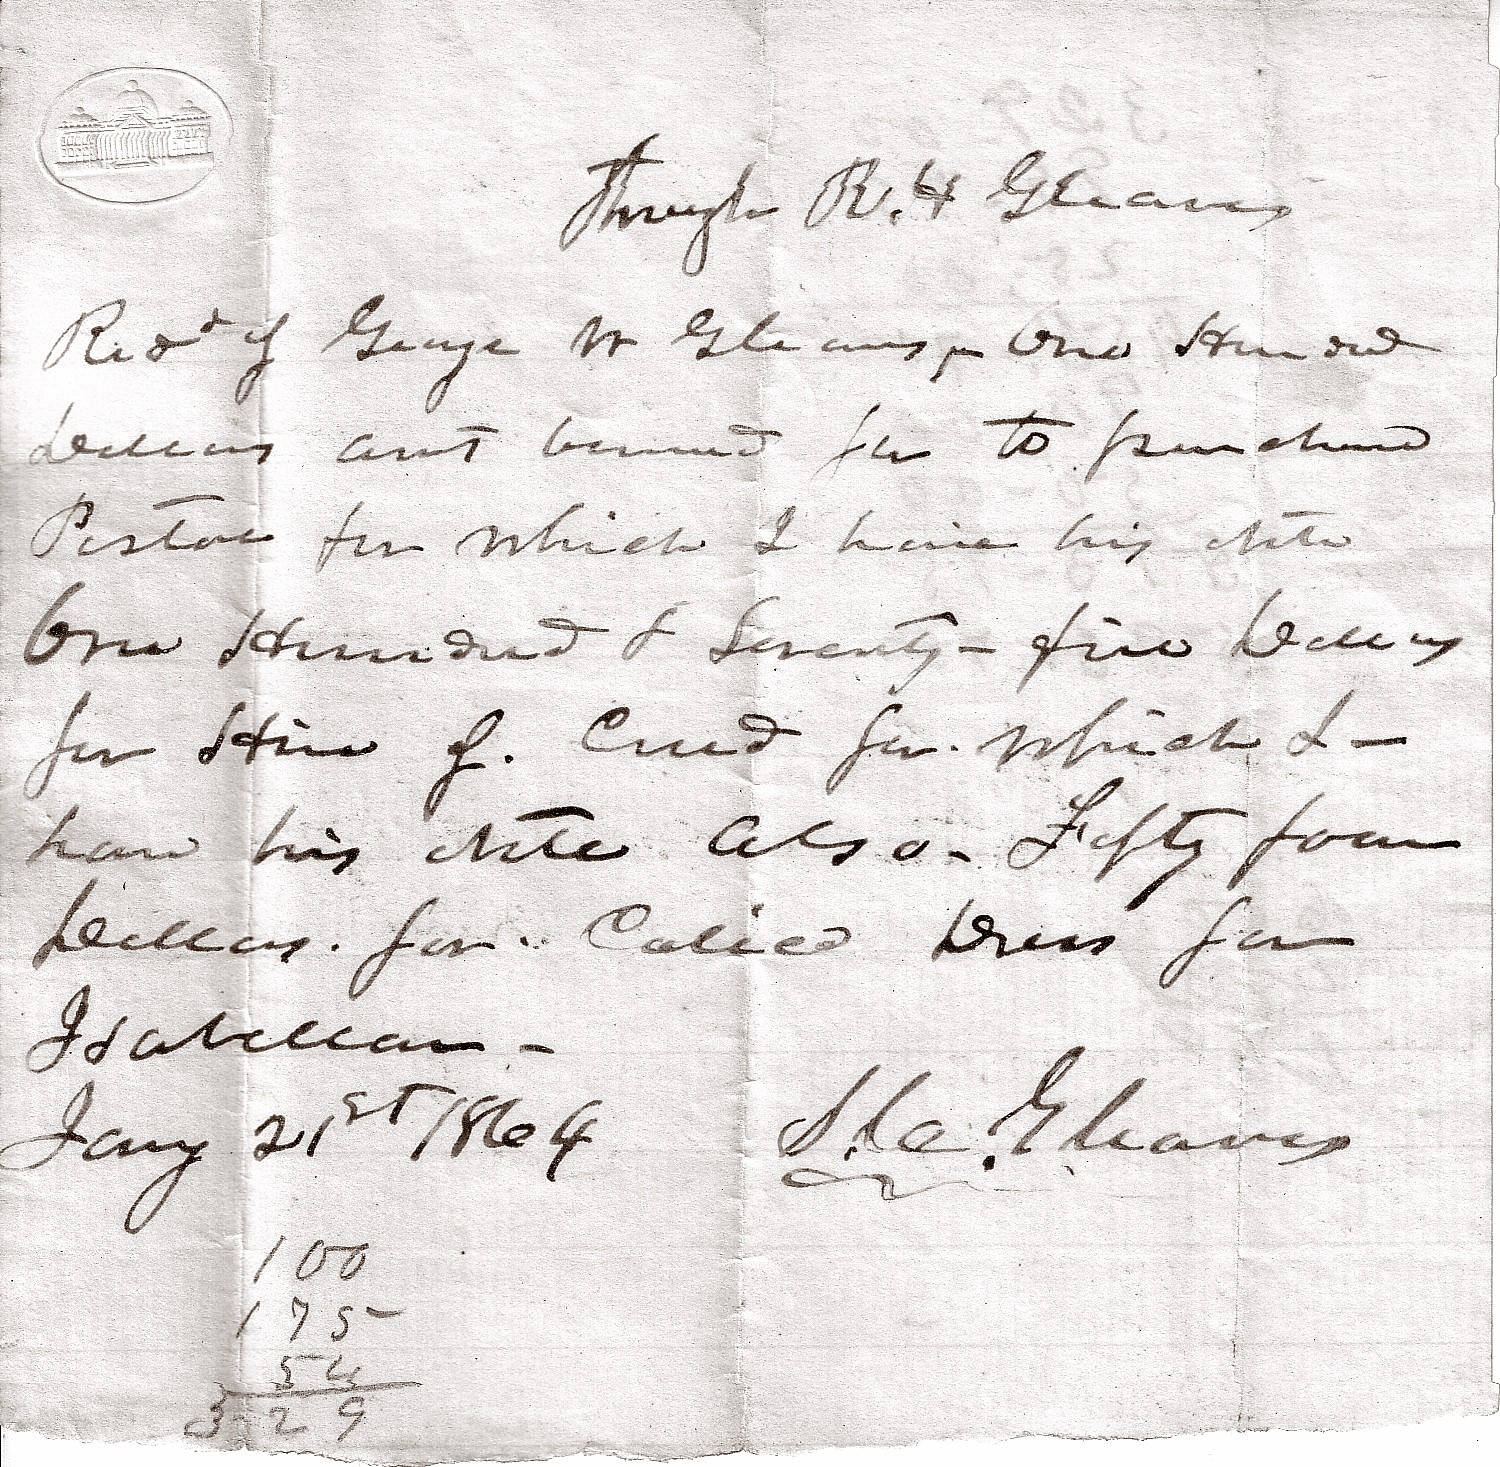 Through R. H Gleaves
Recd of George W Gleaves, One Hundred
Dollars amt borrowed for to purchase
Pistol for which I have his Note
One Hundred & Seventy-five Dollars
for Hire of. Creed for. which I-
have his Note Also- Fifty four
Dollars. for. Calico Dress for
Isabellar-
Jany 21st 1864 S. C. Gleaves
100
175
54
329